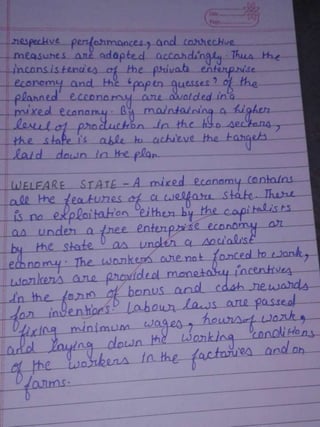 respective performances, and corrective
measures are adopted accordingly. Thus the
inconsistencies of the private enterprise
economy and the "paper guesses" of the
planned ecconomy are avoided in a
mixed economy. By maintaining a higher
level of production in the two sectors,
the state is able to achieve the targets
laid down in the plan.
WELFARE STATE - A mixed economy contains
all the features of a welfare state. There
is no exploitation either by the capitalists
as under a free enterprise economy or
by the state as under a socialist
economy. The workers are not forced to work,
workers are provided monetary incentives
in the form of bonus and cash rewards
for inventions. Labour laws are passed
fixing minimum wages, hours of work,
and laying down the working conditions
of the workers in the factories and on
farms.